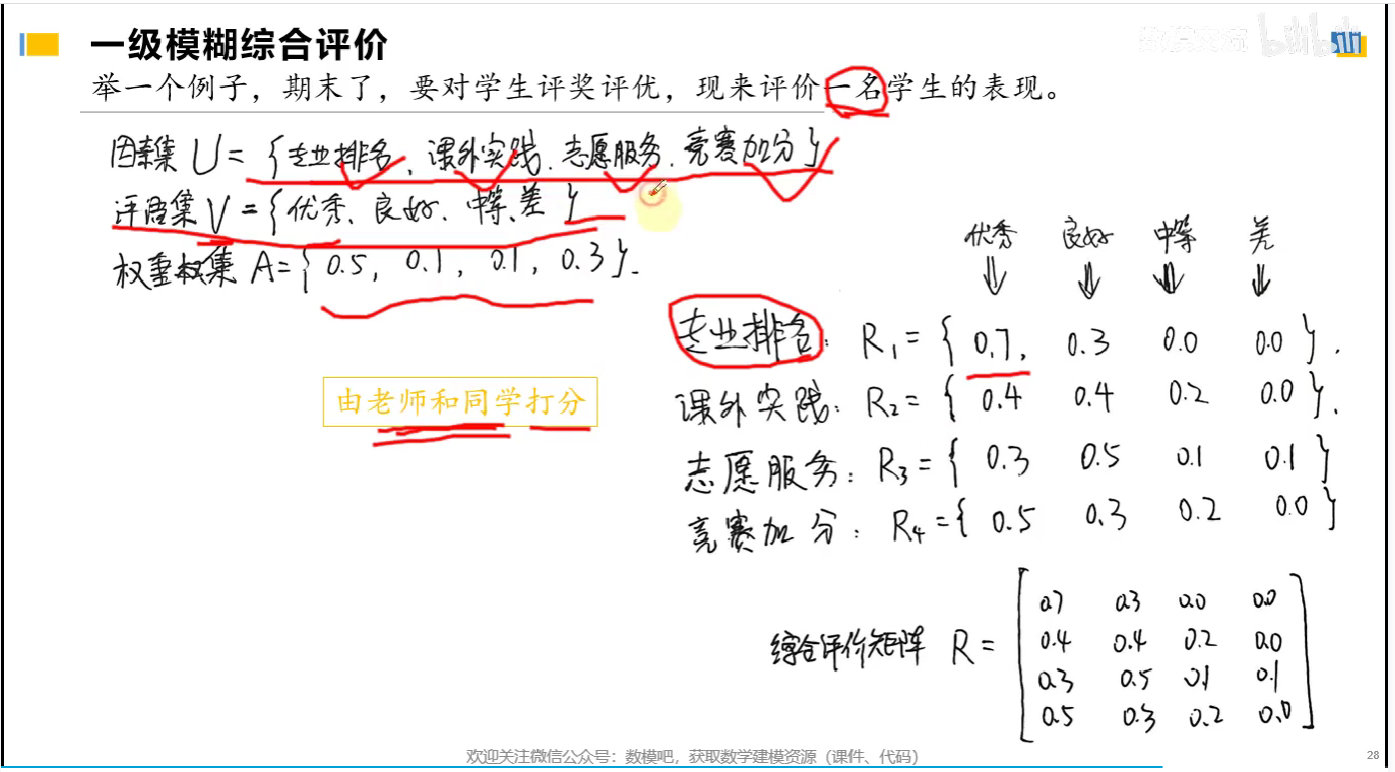 一级模糊综合评价
数模交流 bilibili
举一个例子，期末了，要对学生评奖评优，现来评价一名学生的表现。
因素集 U = {专业排名、课外实践、志愿服务、竞赛加分}
评语集 V = {优秀、良好、中等、差}
权重权集 A = {0.5, 0.1, 0.1, 0.3}.
由老师和同学打分
优秀 良好 中等 差
专业排名: R1 = { 0.7, 0.3 0.0 0.0 }.
课外实践: R2 = { 0.4 0.4 0.2 0.0 }.
志愿服务: R3 = { 0.3 0.5 0.1 0.1 }
竞赛加分: R4 = { 0.5 0.3 0.2 0.0 }
综合评价矩阵 R =
0.7 0.3 0.0 0.0
0.4 0.4 0.2 0.0
0.3 0.5 0.1 0.1
0.5 0.3 0.2 0.0
欢迎关注微信公众号：数模吧，获取数学建模资源（课件、代码）
28